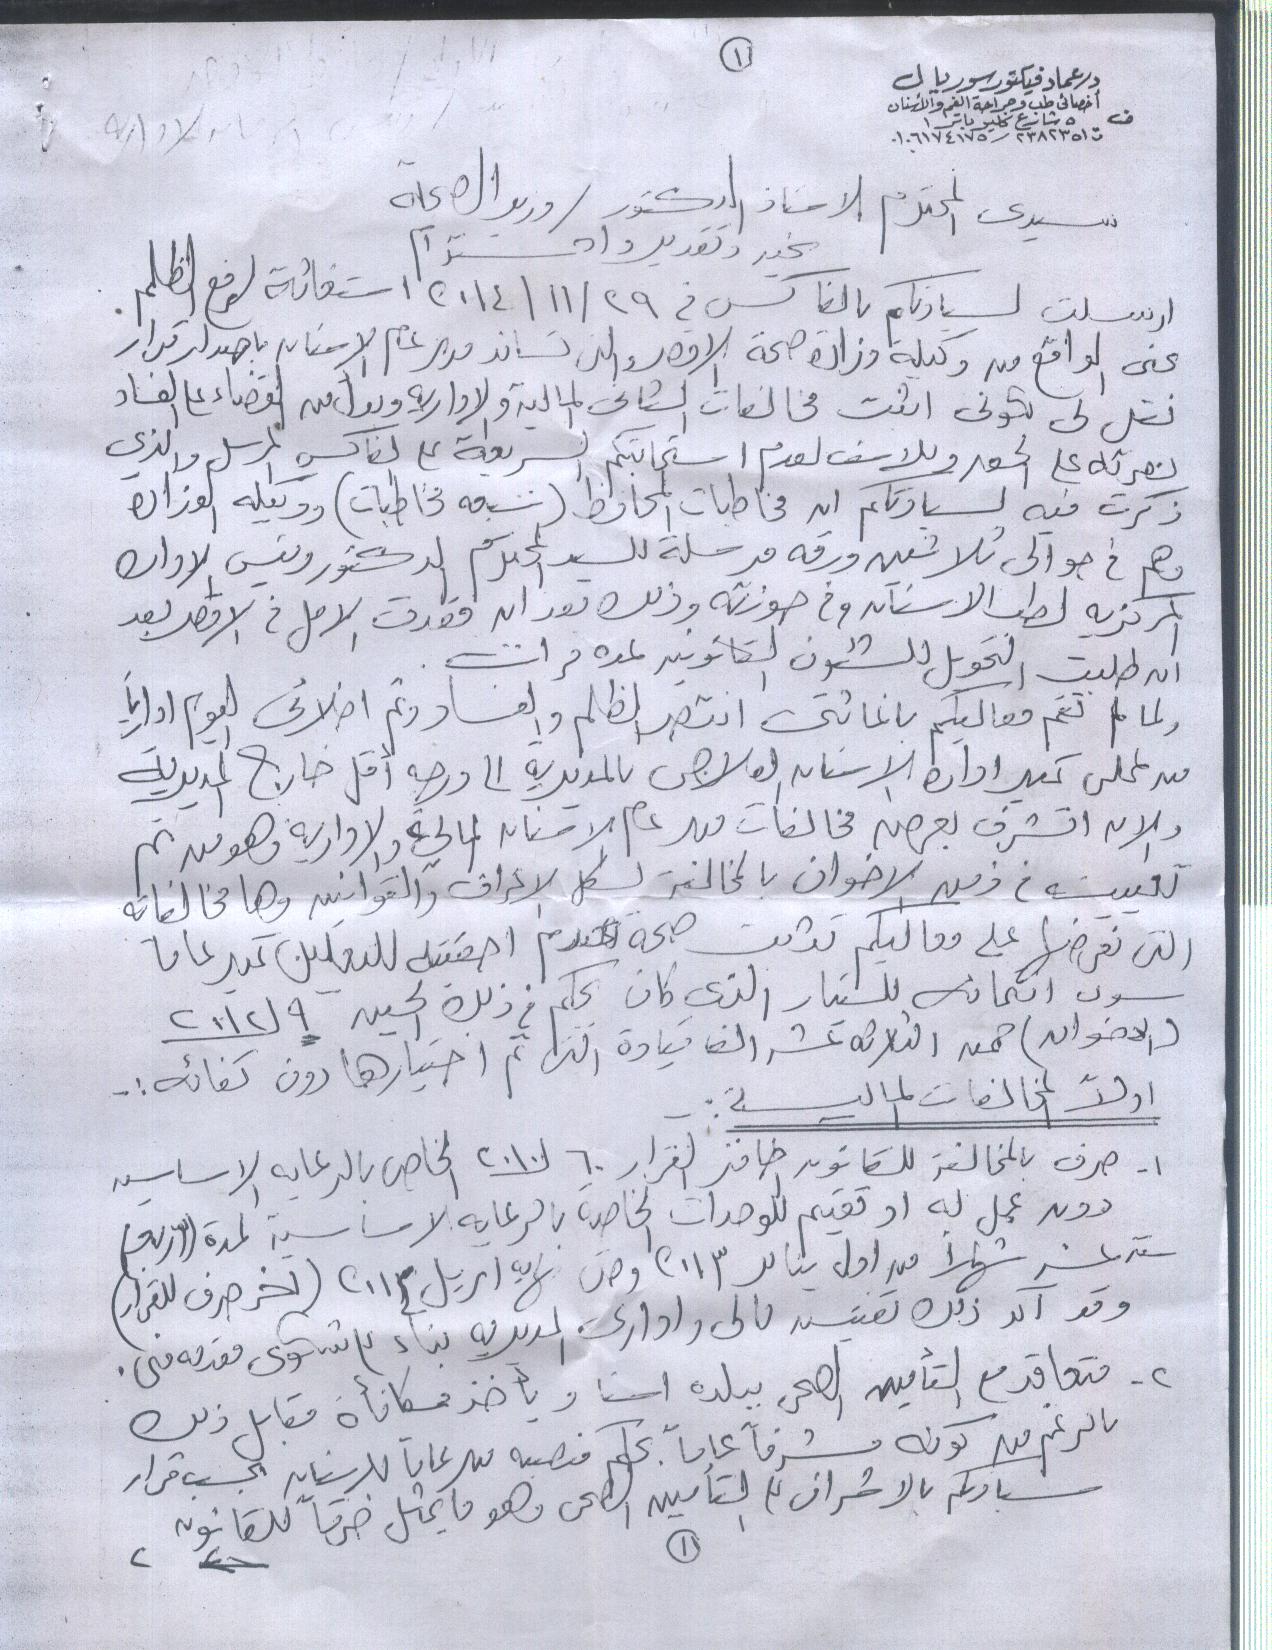 ١
د. عماد فيكتور سوريال
أخصائى طب وجراحة الفم والأسنان
ف ٥ شارع باش ١
ت ٢٣٨٢٣٥١ / ٠١٠٦١٧٤١٧٥
سيدى المحترم الاستاذ الدكتور / وزير الصحة
تقدير و
ارسلت لسيادتكم بالفاكس فى ٢٩ / ١١ / ٢٠١٤ استغاثة لرفع الظلم
عنى الواقع من وكيلة وزارة صحة الاقصر والتى تساند مدير عام الاسنان باصدار قرار
نقل لى كونى اثبت مخالفات المالية والادارية وبدل من القضاء على الفساد
وللاسف لعدم استجابتكم السريعة على الفاكس المرسل والذي
ذكرت فيه لسيادتكم ان مخاطبات المحافظ (سبعه مخاطبات) ووكيله الوزارة
وهم فى حوالى ثلاثين ورقه مرسلة للسيد المحترم الدكتور رئيس الاداره
المركزيه لطب الاسنان وفى حوزته وذلك بعد ان فقدت الامل فى الاقصر بعد
ان طلبت التحويل للشئون القانونيه لعده مرات .
ولما لم تقم معاليكم باغاثتى انتصر الظلم والفساد وتم اخلائى اليوم اداريا
من عملى كمدير اداره الاسنان العلاجى بالمديرية الى درجه أقل خارج المديرية
والان اتشرف بعرض مخالفات مدير عام الاسنان المالية والادارية وهو من تم
تعيينه فى زمن الاخوان بالمخالفة لكل الاعراف والقوانين وها مخالفاته
التى نعرضها على معاليكم تثبت صحة عدم احقيته للتعيين كمدير عاما
سوى انتمائه للتيار الذى كان يحكم فى ذلك الحين ٢٠١٢/٩
(الاخوان) ضمن الثلاثه عشر الف قيادة التى تم اختيارها دون كفائه :ـ
اولاً المخالفات الماليـــة :ـ
١- صرف بالمخالفة للقانون حافز القرار ٦٠ ل ٢٠١٠ الخاص بالرعايه الاساسيه
دون عمل له او تقييم للوحدات الخاصة بالرعايه الاساسية لمدة
ستة عشر شهراً من اول يناير ٢٠١٣ وحتى نهايه ابريل ٢٠١٤ (اخر صرف للقرار)
وقد أكد ذلك تفتيش مالى وادارى المديريه بناء على شكوى مقدمه منى .
٢- متعاقد مع التأمين الصحى ببلده اسنا و يأخذ مكافأة مقابل ذلك
بالرغم من كونه مشرفاً عاماً بحكم منصبه مدير عاما للاسنان بحسب قرار
سيادتكم بالاشراف على التأمين الصحى وهو ما يمثل خرقاً للقانون
١
٢